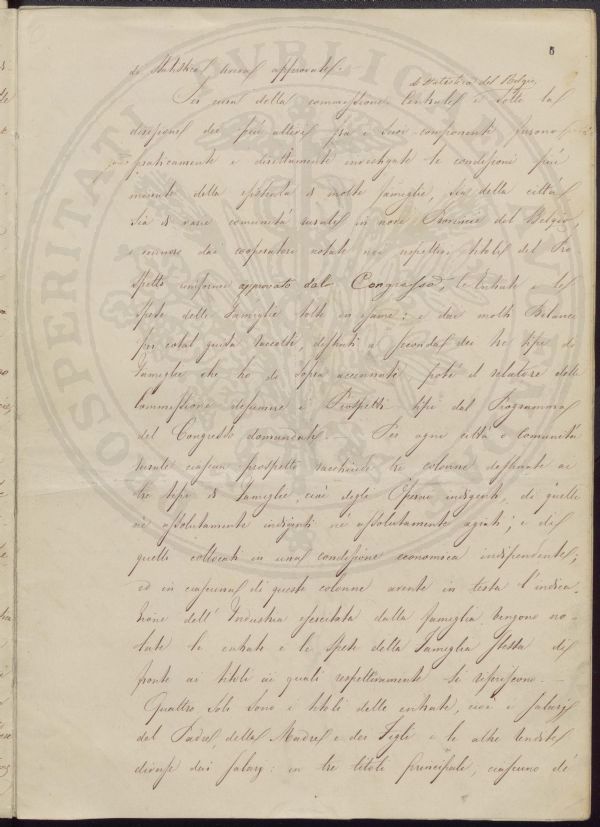 5
di Statistica venne approvato.
di Statistica del Belgio,
Per cura della commissione Centrale e sotto la
direzione dei più alteri fra i suoi componenti furono
praticamente e direttamente investigate le condizioni più
minute della esistenza di molte famiglie, sia della città
sia di varie comunità rurali in nove Provincie del Belgio,
e vennero dai cooperatori notate nei rispettivi titoli del Pro
spetto uniforme approvato dal Congresso, le Entrate e le
spese delle famiglie tolte in esame: e dai molti Bilanci
per cotal guisa raccolti, distinti a seconda dei tre tipi di
famiglie che ho di sopra accennati potè il relatore della
Commissione desumere i Prospetti tipi dal Programma
del Congresso domandati. — Per ogni città o Comunità
rurale ciascun prospetto racchiude tre colonne destinate ai
tre tipi di famiglie, cioè degli Operai indigenti, di quelli
nè assolutamente indigenti nè assolutamente agiati; e di
quelli collocati in una condizione economica indipendente;
ed in ciascuna di queste colonne avente in testa l'indica
zione dell'Industria esercitata dalla famiglia vengono no-
tate le entrate e le spese della famiglia stessa di
fronte ai titoli ai quali rispettivamente si riferiscono. —
Quattro soli sono i titoli delle entrate, cioè i salarj
del Padre, della Madre e dei Figli e le altre rendite
diverse dai salarj: in tre titoli principali, ciascuno de'
PROSPERITATI PUBLICAE